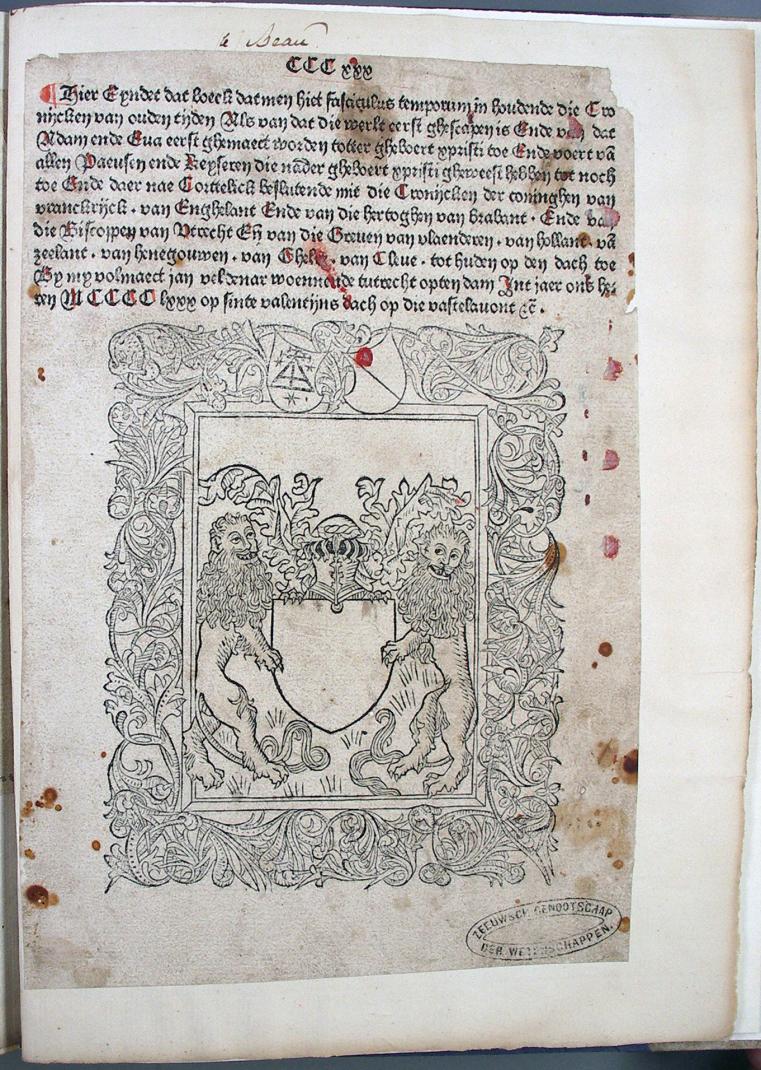 te Beau
CCC xxx
Hier Eyndet dat boeck datmen hiet fasciculus temporum in houdende die Cro
nijcken van ouden tijden Als van dat die werlt eerst ghescapen is Ende van dat
Adam ende Eua eerst ghemaect worden totter gheboert xpristi toe Ende voert vā
allen Paeusen ende Keyseren die nader gheboert xpristi gheweest hebben tot noch
toe Ende daer nae Corttelick beslutende mit die Cronijcken der coninghen van
vranckrijck · van Enghelant Ende van die hertoghen van brabant · Ende van
die Biscoppen van Vtrecht Eñ van die Greuen van vlaenderen · van hollant · vā
zeelant · van henegouwen · van Ghelre · van Cleue · tot huden op den dach toe
By my volmaect jan veldenar woennende tutrecht opten dam Int jaer ons he:
ren MCCCC lxxx op sinte valentijns dach op die vastelauont ec̄ ·
ZEEUWSCH GENOOTSCHAP
DER WETENSCHAPPEN.